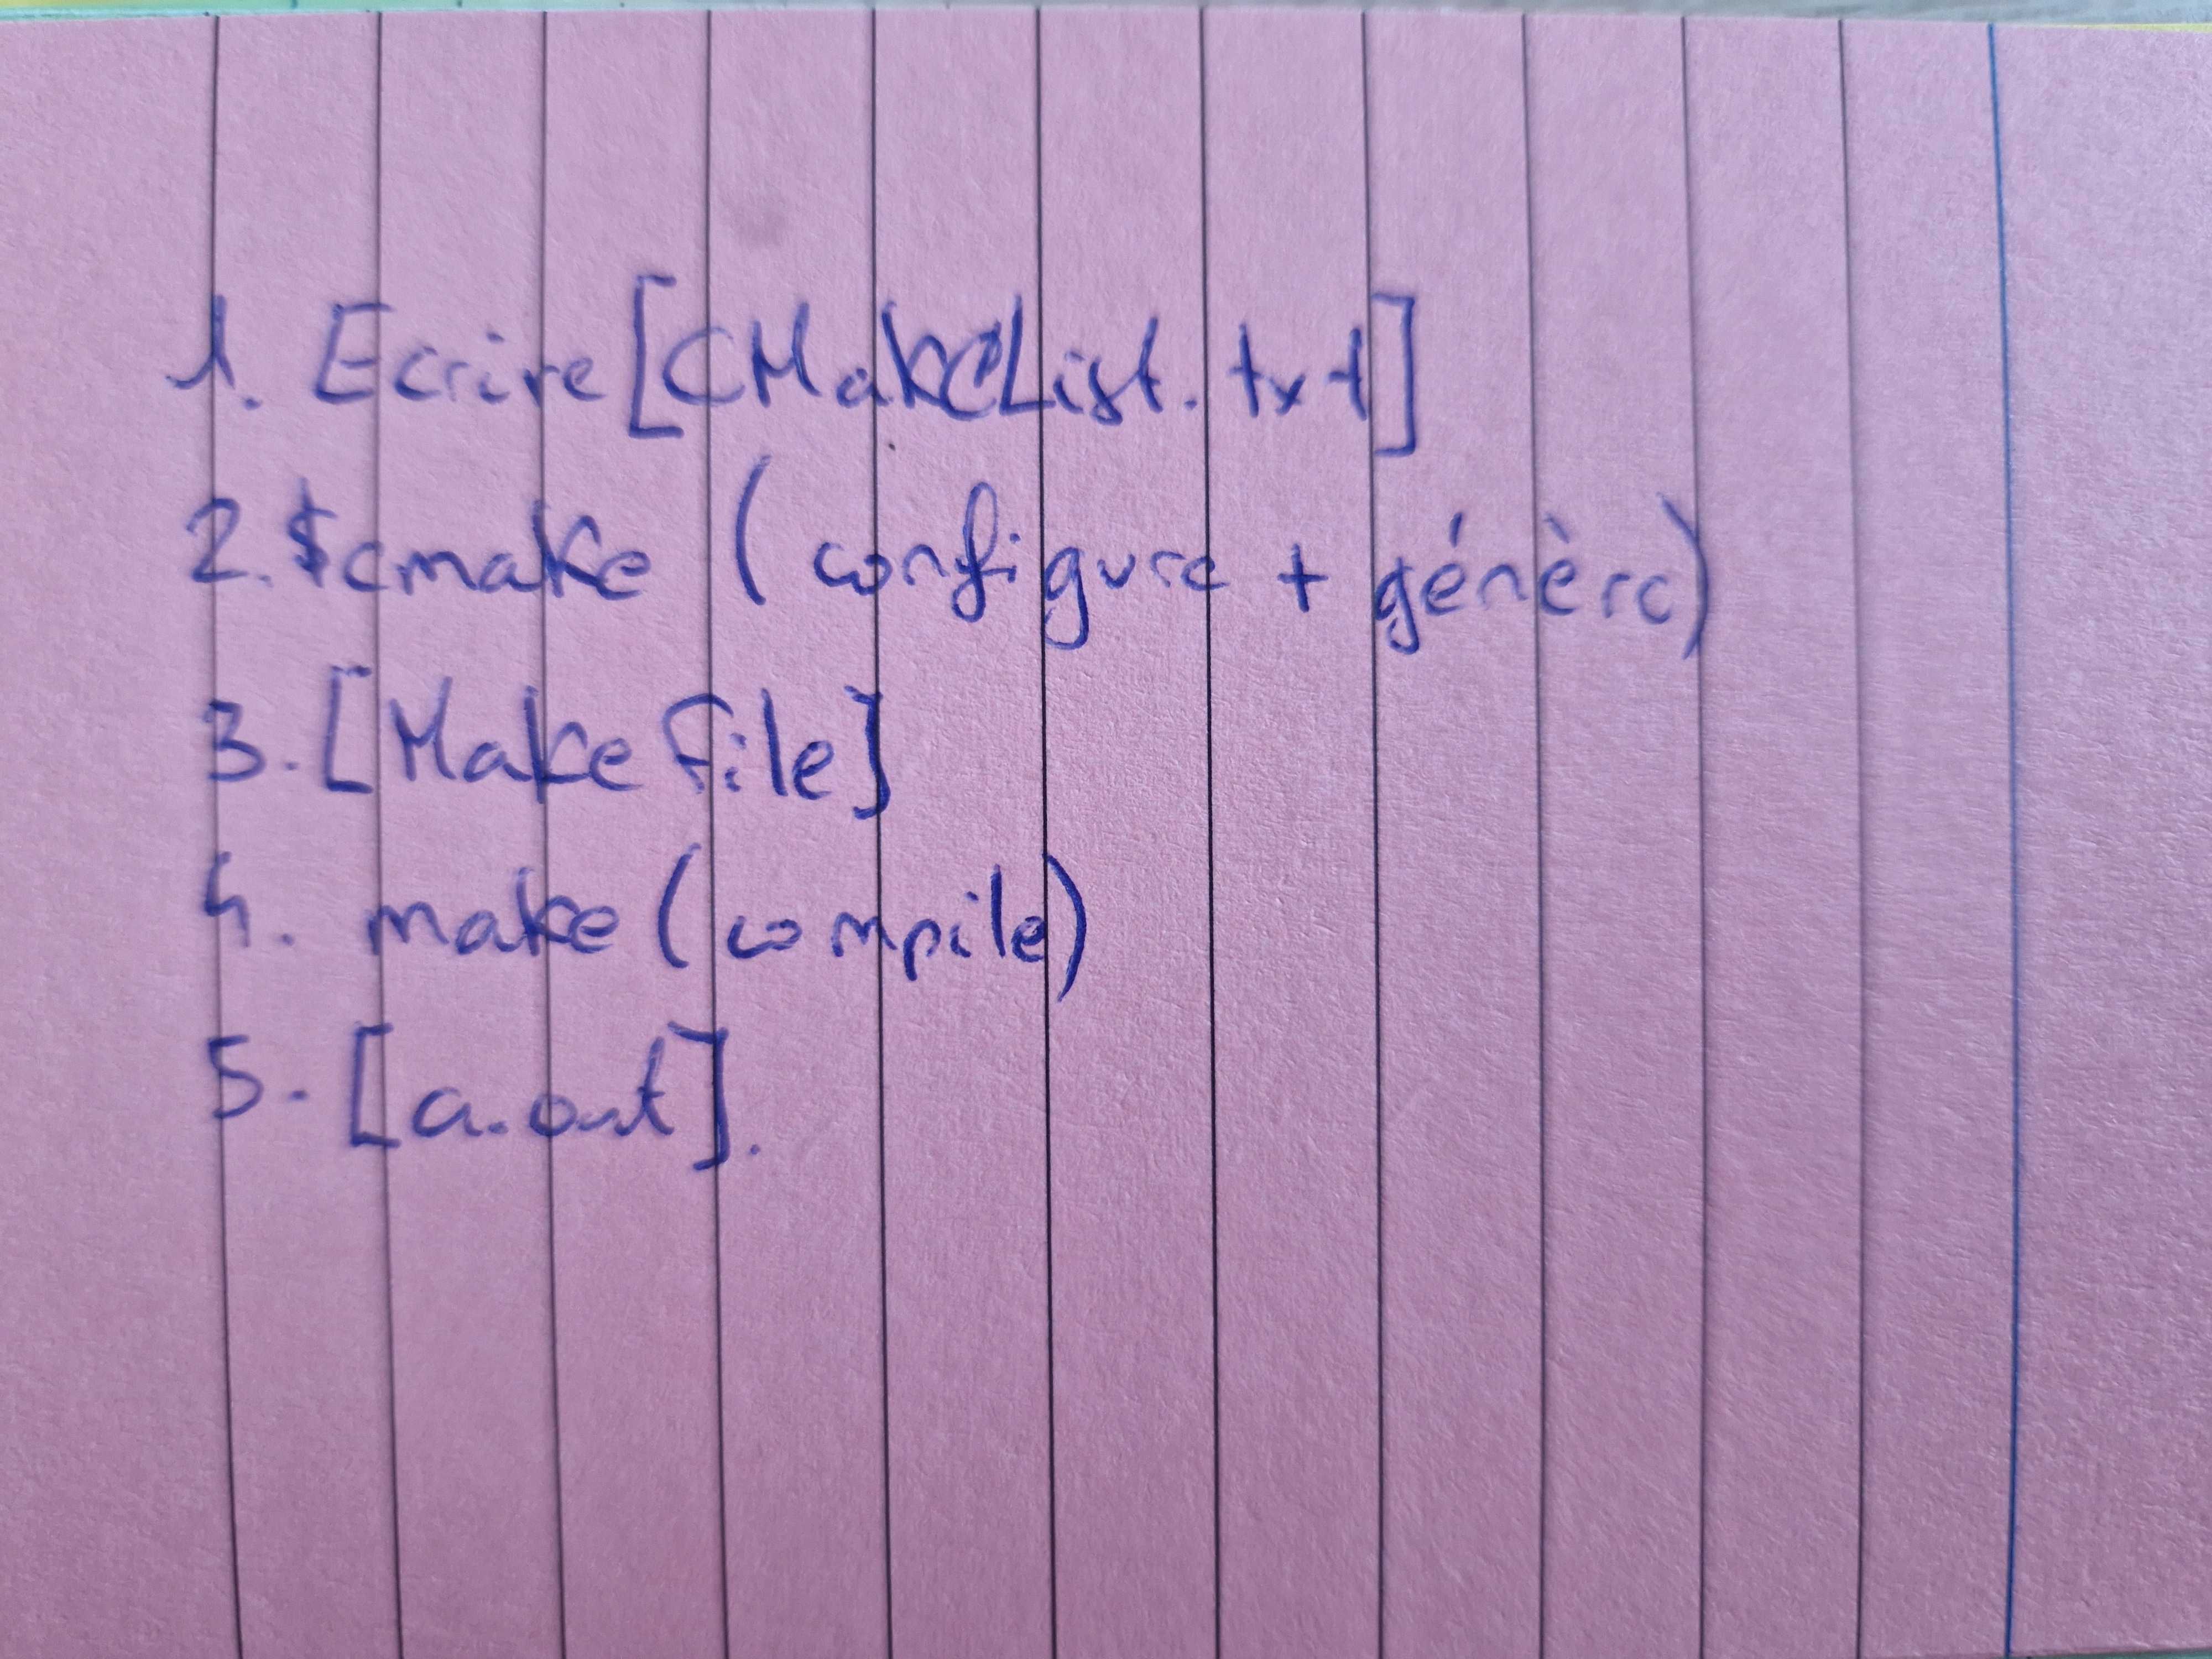 1. Ecrire [CMakeList.txt]
2. $cmake (configure + génère)
3. [Makefile]
4. make (compile)
5. [a.out].